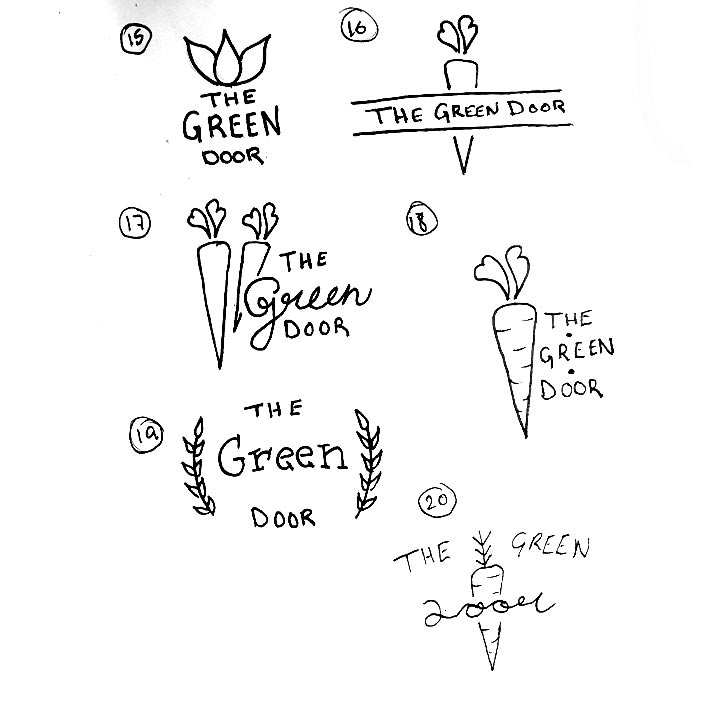 15
THE
GREEN
DOOR
16
THE GREEN DOOR
17
THE
Green
DOOR
18
THE
GREEN
DOOR
19
THE
Green
DOOR
20
THE GREEN
Door